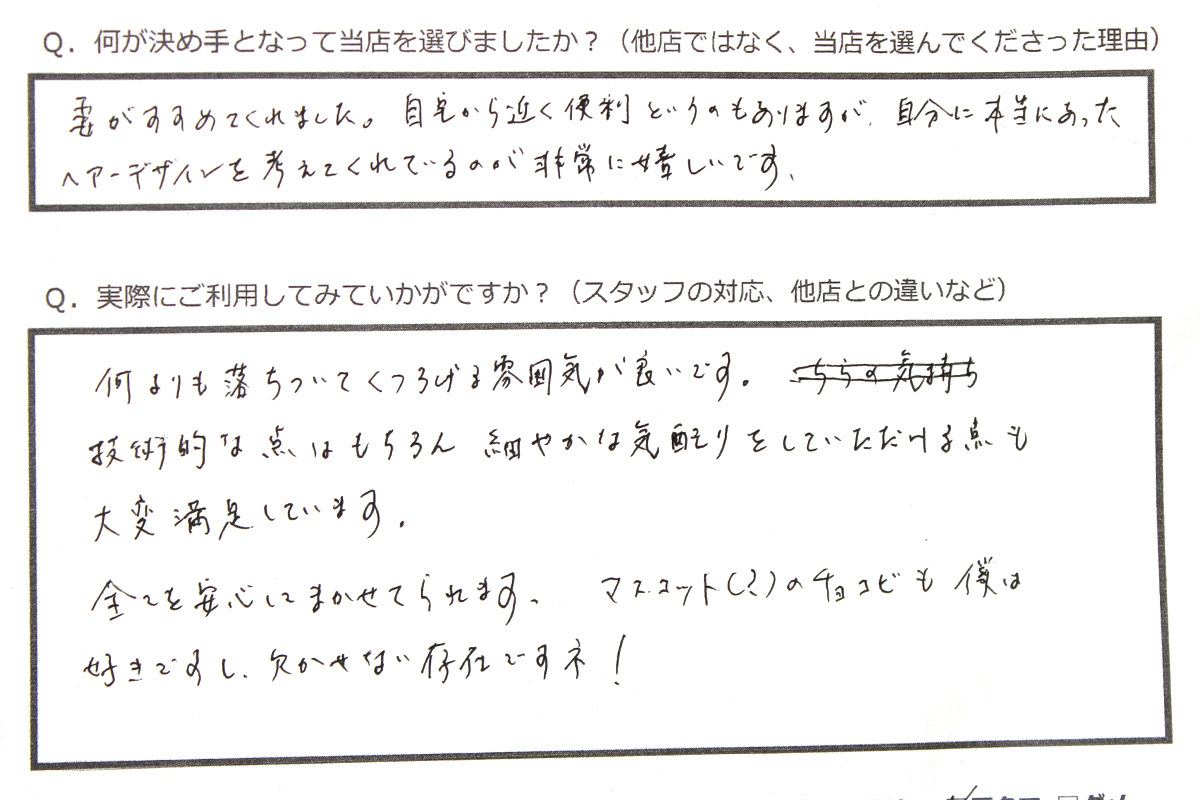 Q．何が決め手となって当店を選びましたか？（他店ではなく、当店を選んでくださった理由）
妻がすすめてくれました。自宅から近く便利というのもありますが、自分に本当にあった
ヘアーデザインを考えてくれているのが非常に嬉しいです、
Q．実際にご利用してみていかがですか？（スタッフの対応、他店との違いなど）
何よりも落ちついてくつろげる雰囲気が良いです。
技術的な点はもちろん 細やかな気配りをしていただける点も
大変満足しています。
全てを安心してまかせてられます、 マスコット(？)のチョコビも僕は
好きですし、欠かせない存在ですネ！